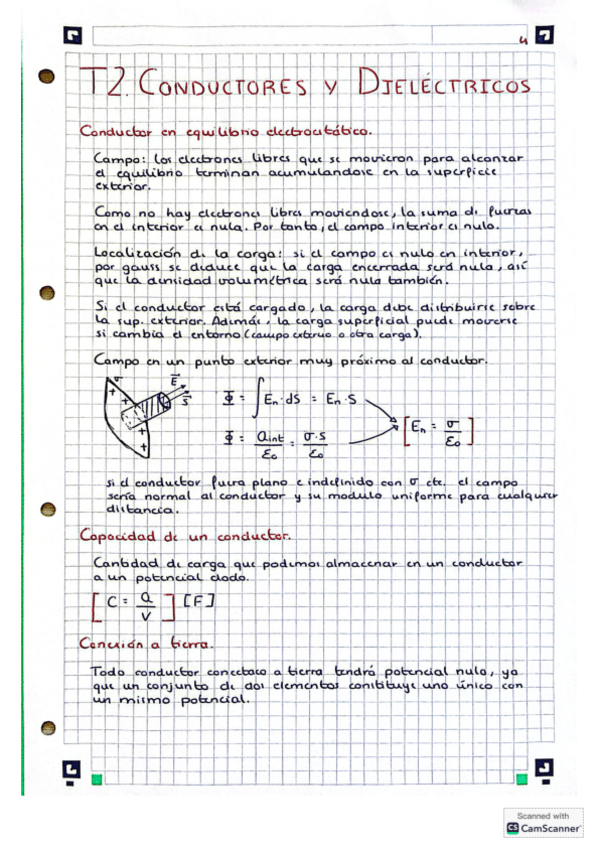 4
T2. CONDUCTORES Y DIELÉCTRICOS
Conductor en equilibrio electrostático.
Campo: los electrones libres que se movieron para alcanzar
el equilibrio terminan acumulandose en la superficie
exterior.
Como no hay electrones libres moviendose, la suma de fuerzas
en el interior es nula. Por tanto, el campo interior es nulo.
Localización de la carga: si el campo es nulo en interior,
por gauss se deduce que la carga encerrada será nula, así
que la densidad volumétrica será nula también.
Si el conductor está cargado, la carga debe distribuirse sobre
la sup. exterior. Además, la carga superficial puede moverse
si cambia el entorno (campo externo o otra carga).
Campo en un punto exterior muy próximo al conductor.
σ E S + + + + +
Φ = ∫ En · dS = En · S
Φ = Qint / ε0 = σ·S / ε0
[ En = σ / ε0 ]
si el conductor fuera plano e indefinido con σ cte. el campo
sería normal al conductor y su modulo uniforme para cualquier
distancia.
Capacidad de un conductor.
Cantidad de carga que podemos almacenar en un conductor
a un potencial dado.
[ C = Q / V ] [F]
Conexión a tierra.
Todo conductor conectado a tierra tendrá potencial nulo, ya
que un conjunto de dos elementos constituye uno único con
un mismo potencial.
Scanned with
CS CamScanner